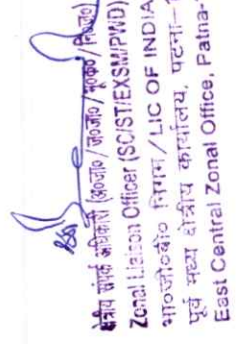 क्षेत्रीय संपर्क अधिकारी (अ०जा०/ज०जा०/भू०क०/नि०ज०)
Zonal Liaison Officer (SC/ST/EXSM/PWD)
भा०जी०बी० निगम/LIC OF INDIA
पूर्व मध्य क्षेत्रीय कार्यालय, पटना-
East Central Zonal Office, Patna-